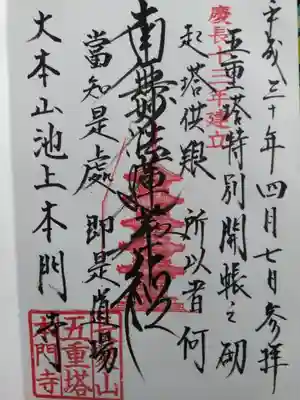 平成三十年四月七日参拝
慶長十三年建立
五重塔特別開帳之砌
起塔供養 所以者何
南無妙法蓮華経
當知是處 即是道場
大本山池上本門寺
五重塔